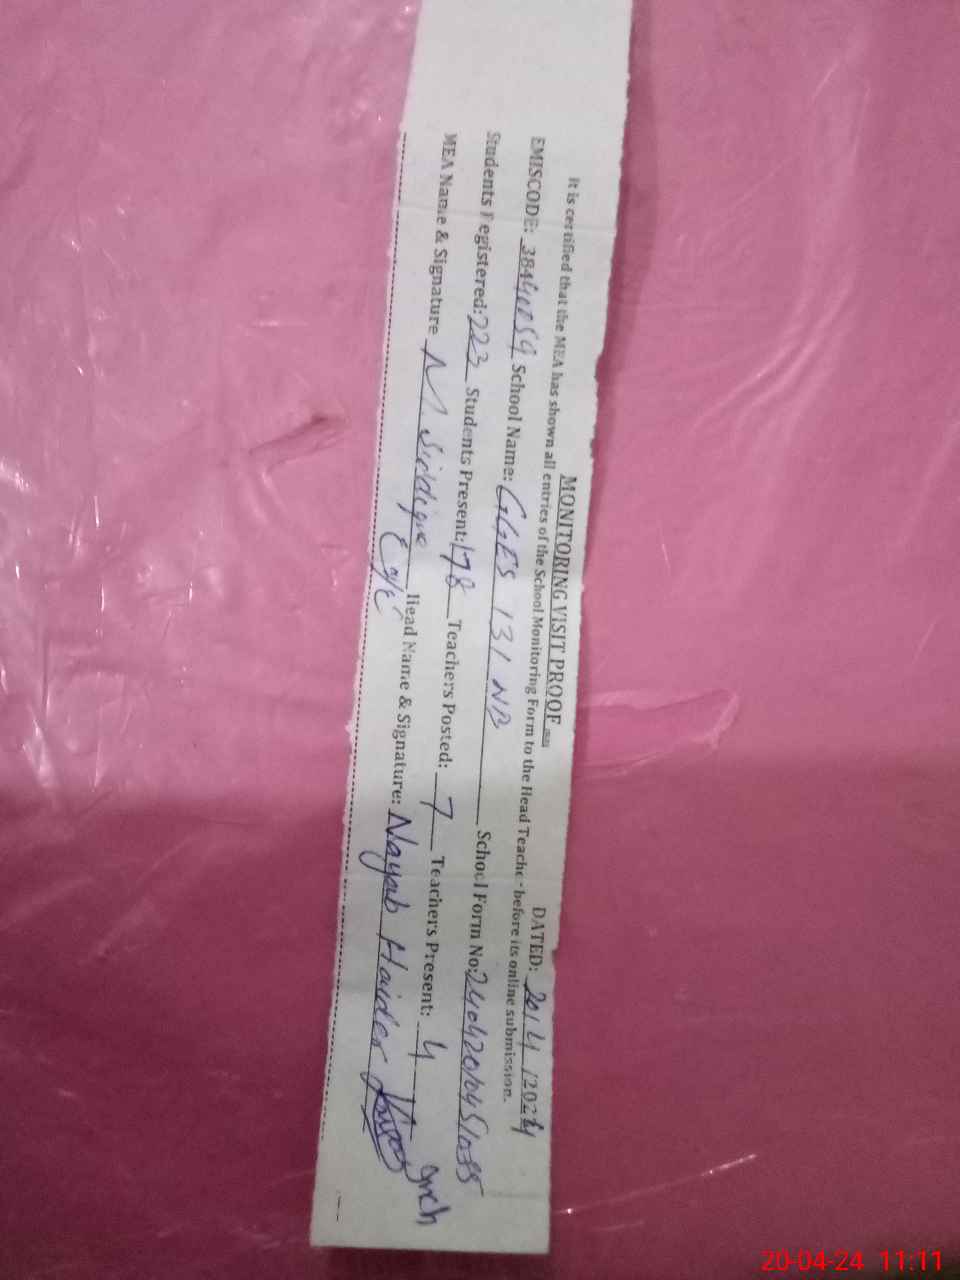 MONITORING VISIT PROOF
DATED: 20/4/2024
It is certified that the MEA has shown all entries of the School Monitoring Form to the Head Teacher before its online submission.
EMISCODE: 38440059 School Name: GGES 131 NB School Form No:
Students Registered: 223 Students Present: 178 Teachers Posted: 7 Teachers Present: 4
MEA Name & Signature M Siddique Head Name & Signature: Nayab Haider
20-04-24 11:11